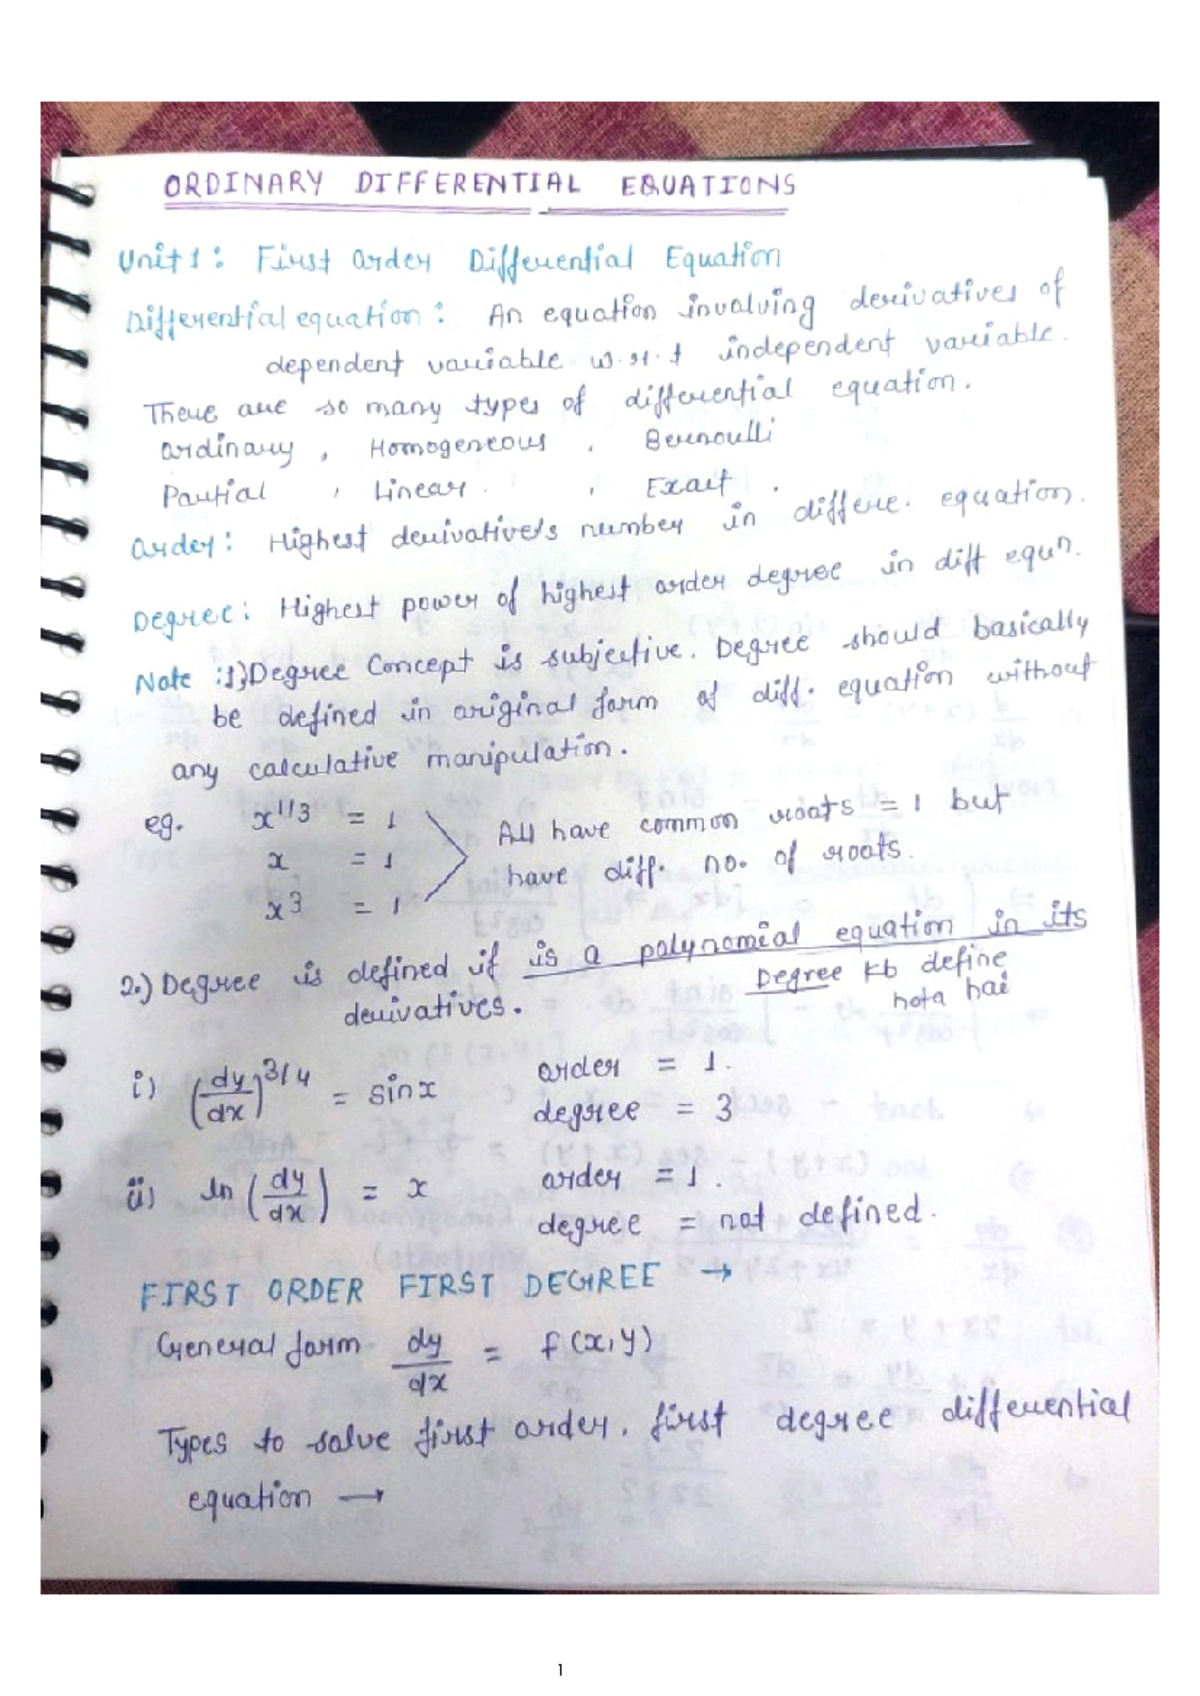 ORDINARY DIFFERENTIAL EQUATIONS
Unit 1: First Order Differential Equation
Differential equation: An equation involving derivatives of
dependent variable w.r.t independent variable.
There are so many types of differential equation.
Ordinary, Homogeneous, Bernoulli
Partial, Linear, Exact.
Order: Highest derivative's number in differe. equation.
Degree: Highest power of highest order degree in diff equⁿ.
Note: 1) Degree Concept is subjective. Degree should basically
be defined in original form of diff. equation without
any calculative manipulation.
eg. x^1/3 = 1
x = 1
x^3 = 1
All have common roots = 1 but
have diff. no. of roots.
2.) Degree is defined if is a polynomial equation in its
derivatives.
Degree kb define
hota hai
i) (dy/dx)^3/4 = sinx
order = 1.
degree = 3
ii) ln(dy/dx) = x
order = 1.
degree = not defined.
FIRST ORDER FIRST DEGREE →
General form dy/dx = f(x,y)
Types to solve first order, first degree differential
equation →
1